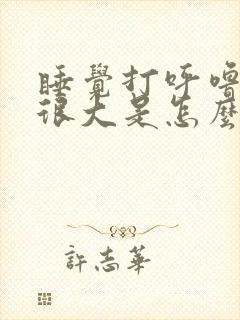 睡覺打呼嚕
很大是怎麼
許志華